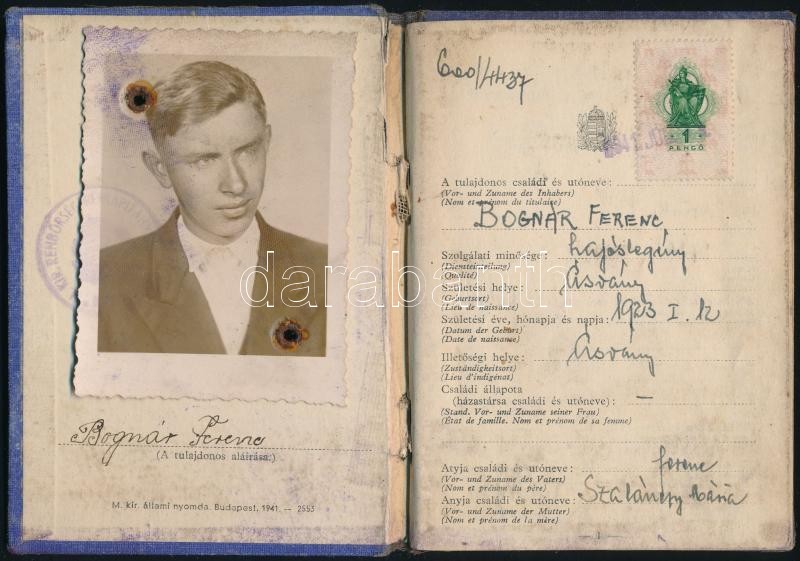 Bognár Ferenc
(A tulajdonos aláírása.)
M. kir. állami nyomda. Budapest, 1941. — 2553
KIR. RENDŐRSÉG
darabanth
600/4437
1
PENGŐ
A tulajdonos családi és utóneve:
(Vor- und Zuname des Inhabers)
(Nom et prénom du titulaire)
BOGNÁR FERENC
Szolgálati minősége: hajóslegény
(Diensteinteilung)
(Qualité)
Születési helye: Ásvány
(Geburtsort)
(Lieu de naissance)
Születési éve, hónapja és napja: 1923 I. 12
(Datum der Geburt)
(Date de naissance)
Illetőségi helye: Ásvány
(Zuständigkeitsort)
(Lieu d'indigénat)
Családi állapota
(házastársa családi és utóneve): —
(Stand. Vor- und Zuname seiner Frau)
(État de famille. Nom et prénom de sa femme)
Atyja családi és utóneve: Ferenc
(Vor- und Zuname des Vaters)
(Nom et prénom du père)
Anyja családi és utóneve: Mária
(Vor- und Zuname der Mutter)
(Nom et prénom de la mère)
1